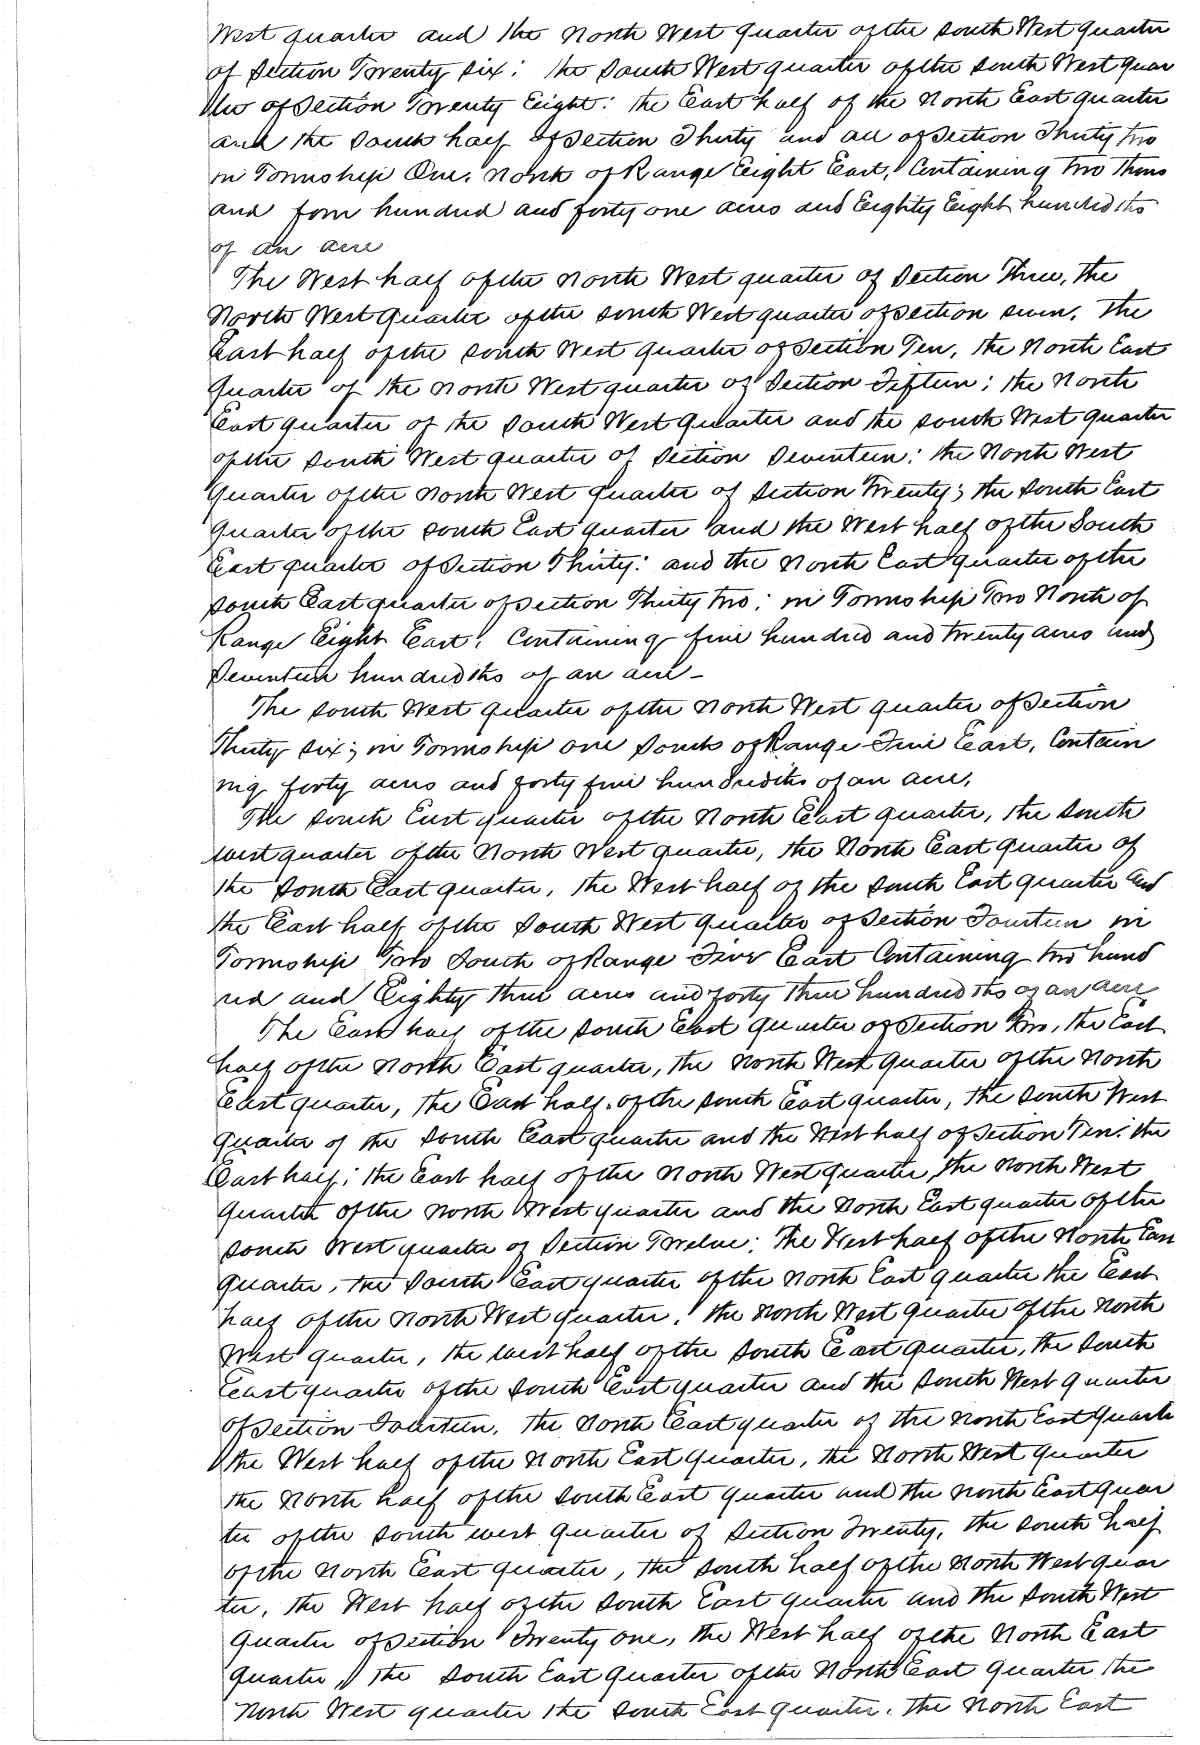 West quarter and the North West quarter of the South West quarter
of Section Twenty six; the South West quarter of the South West quar
ter of Section Twenty Eight; the East half of the North East quarter
and the South half of Section Thirty and all of Section Thirty two
in Township One, North of Range Eight East, Containing two thous
and four hundred and forty one acres and Eighty Eight hundredths
of an acre
The West half of the North West quarter of Section Three, the
North West quarter of the South West quarter of Section seven, the
East half of the South West quarter of Section Ten, the North East
quarter of the North West quarter of Section Fifteen; the North
East quarter of the South West quarter and the South West quarter
of the South West quarter of Section Seventeen; the North West
quarter of the North West quarter of Section Twenty; the South East
quarter of the South East quarter and the West half of the South
East quarter of Section Thirty; and the North East quarter of the
South East quarter of Section Thirty two; in Township Two North of
Range Eight East, Containing five hundred and twenty acres and
Seventeen hundredths of an acre—
The South West quarter of the North West quarter of Section
Thirty six; in Township one South of Range Five East, Contain
ing forty acres and forty five hundredths of an acre.
The South East quarter of the North East quarter, the South
west quarter of the North West quarter, the North East quarter of
the South East quarter, the West half of the South East quarter and
the East half of the South West quarter of Section Fourteen in
Township Two South of Range Five East Containing two hund
red and Eighty three acres and forty three hundredths of an acre
The East half of the South East quarter of Section Two, the East
half of the North East quarter, the North West quarter of the North
East quarter, the East half of the South East quarter, the South West
quarter of the South East quarter and the West half of Section Ten; the
East half; the East half of the North West quarter, the North West
quarter of the North West quarter and the North East quarter of the
South West quarter of Section Twelve; The West half of the North East
quarter, the South East quarter of the North East quarter the East
half of the North West quarter, the North West quarter of the North
West quarter, the west half of the South East quarter, the South
East quarter of the South East quarter and the South West quarter
of Section Fourteen, the North East quarter of the North East quarter
the West half of the North East quarter, the North West quarter
the North half of the South East quarter and the North East quar
ter of the South west quarter of Section Twenty, the South half
of the North East quarter, the South half of the North West quar
ter, the West half of the South East quarter and the South West
quarter of Section Twenty one, the West half of the North East
quarter, the South East quarter of the North East quarter the
North West quarter the South East quarter, the North East